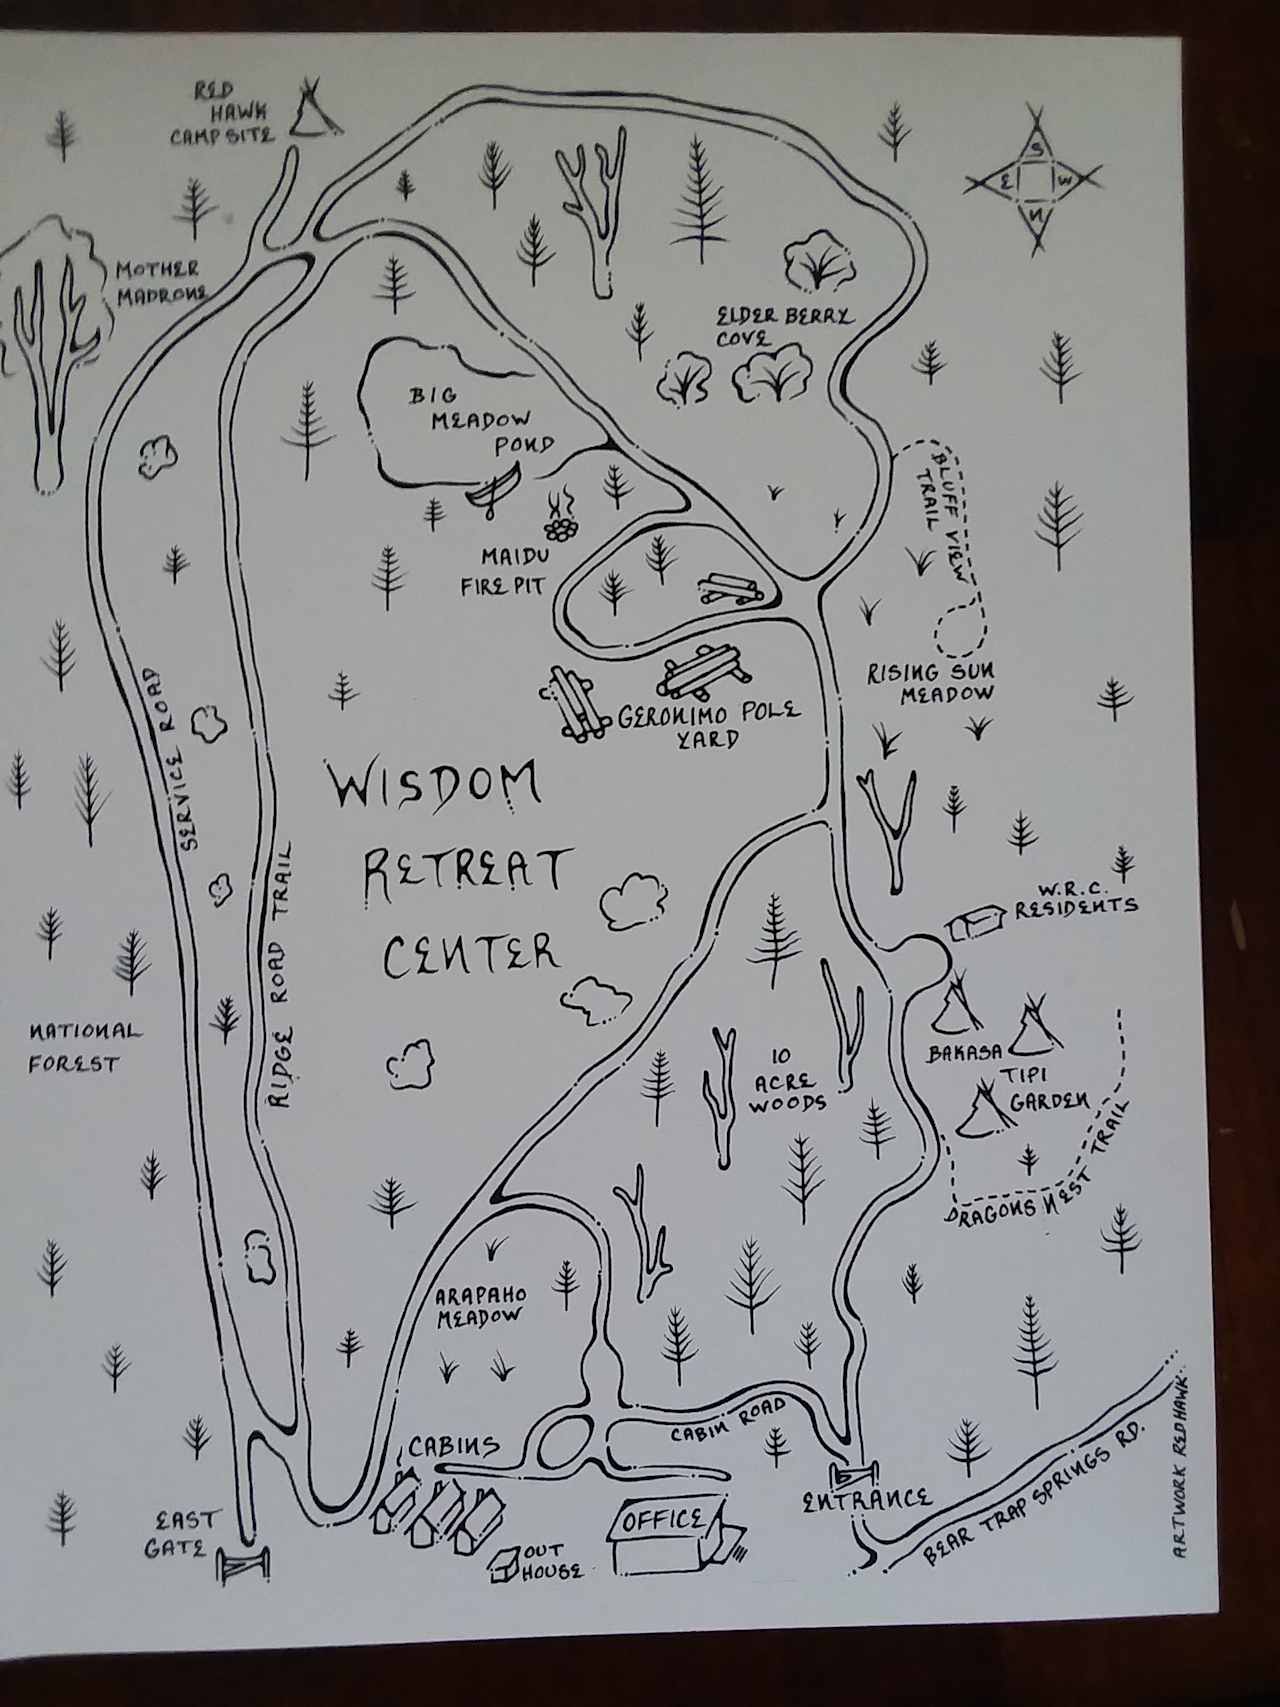 RED
HAWK
CAMPSITE
S
E
W
N
MOTHER
MADRONE
ELDER BERRY
COVE
BIG
MEADOW
POND
BLUFF VIEW
TRAIL
MAIDU
FIRE PIT
RISING SUN
MEADOW
GERONIMO POLE
YARD
SERVICE ROAD
WISDOM
RETREAT
CENTER
RIDGE ROAD TRAIL
W.R.C.
RESIDENTS
NATIONAL
FOREST
10
ACRE
WOODS
BAKASA
TIPI
GARDEN
DRAGONS NEST TRAIL
ARAPAHO
MEADOW
CABIN ROAD
CABINS
ENTRANCE
OFFICE
EAST
GATE
OUT
HOUSE
BEAR TRAP SPRINGS RD.
ARTWORK REDHAWK